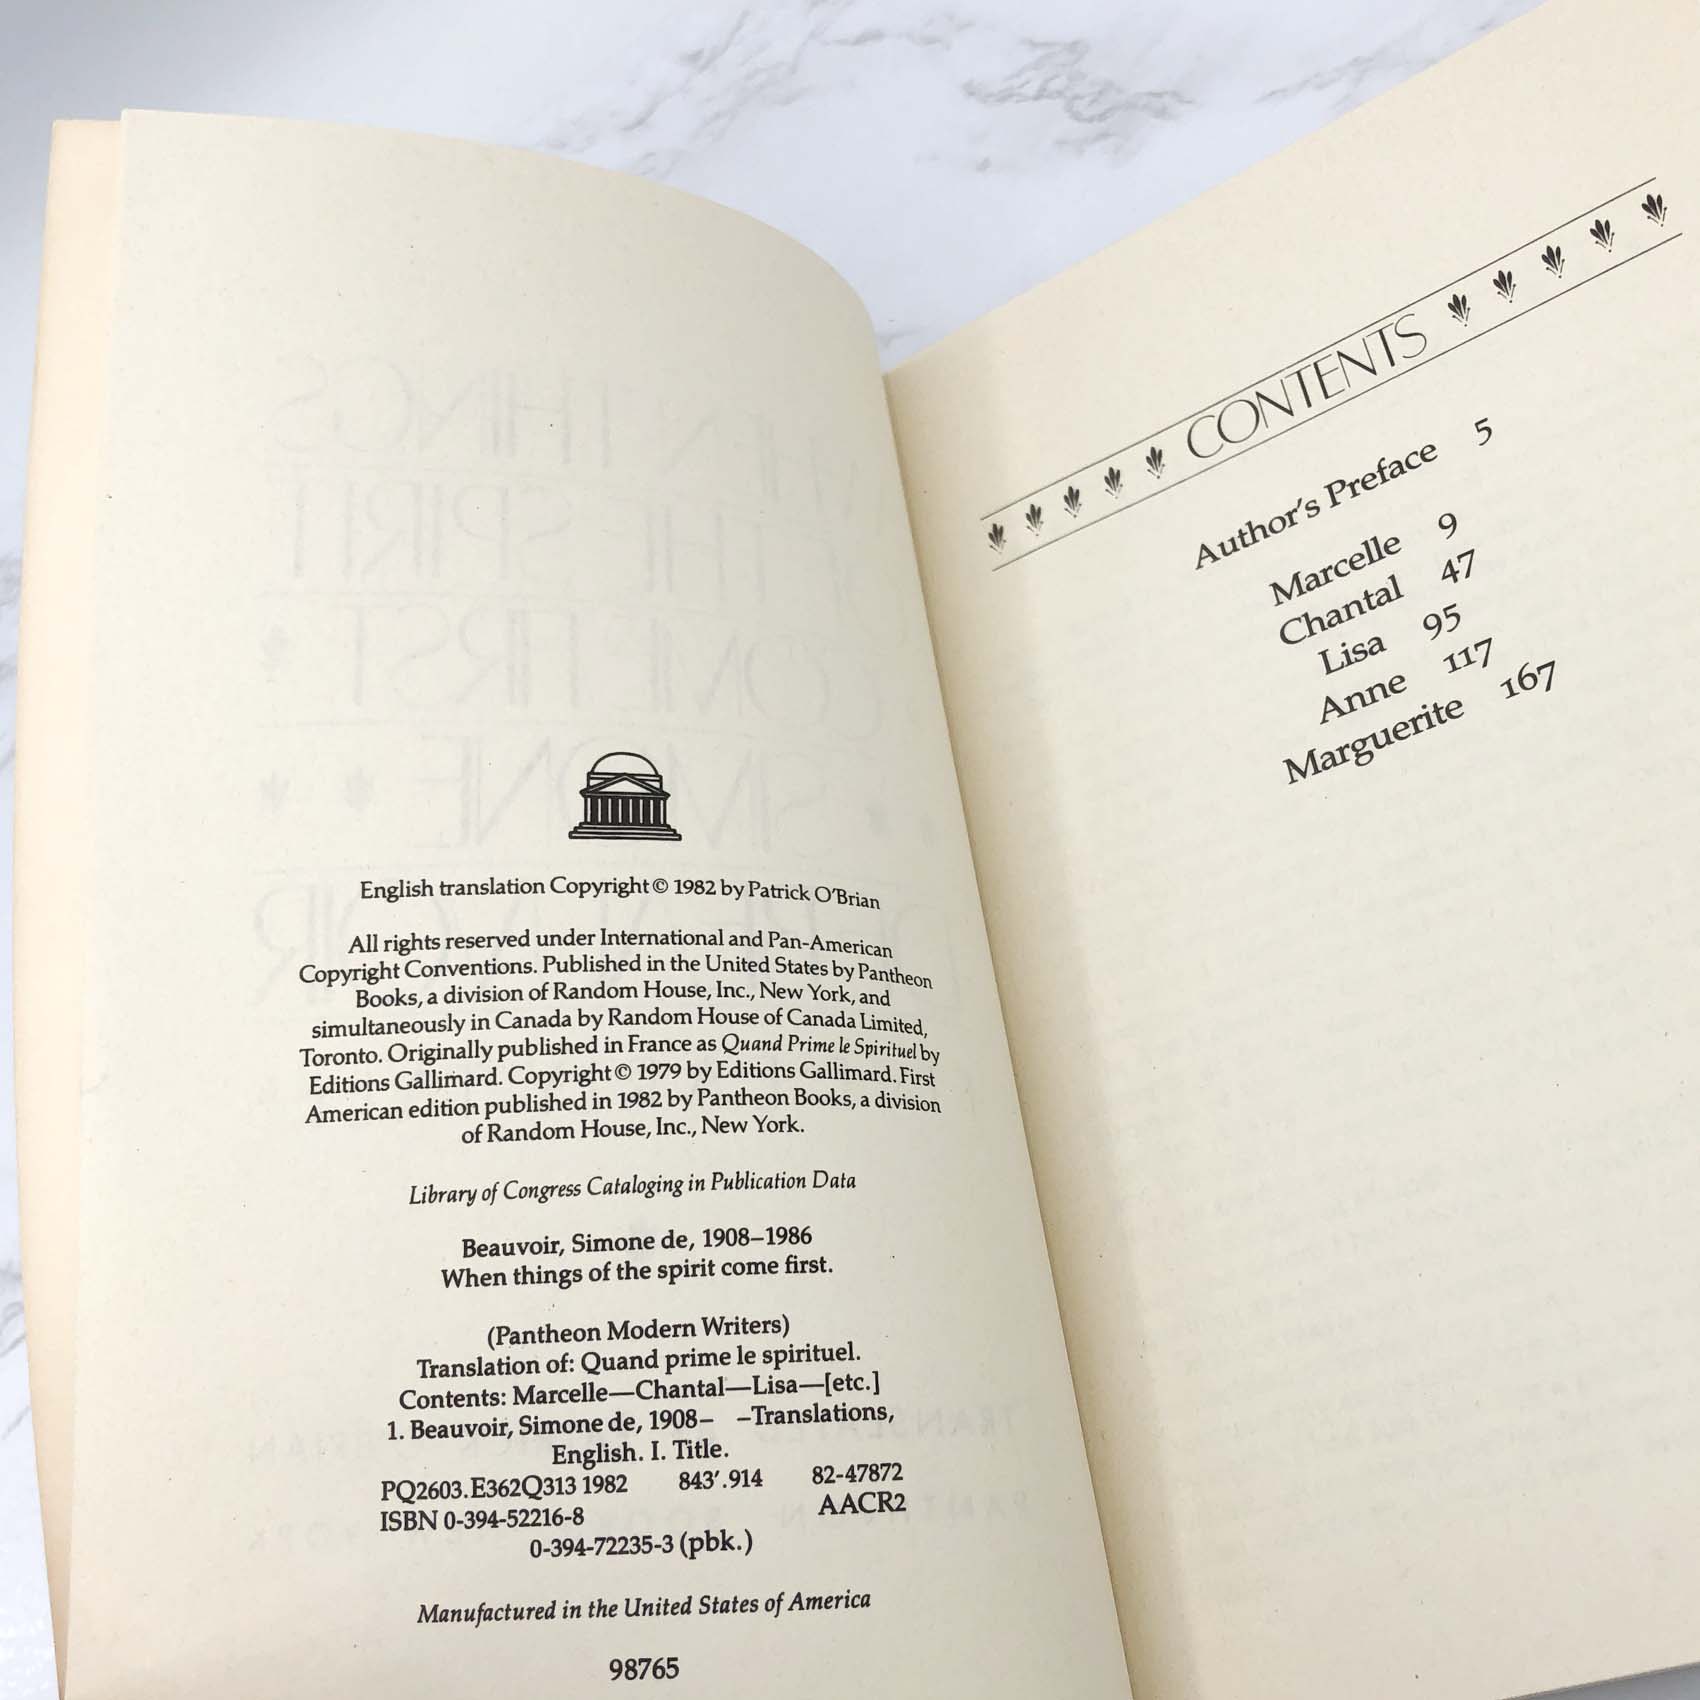 English translation Copyright © 1982 by Patrick O'Brian
All rights reserved under International and Pan-American
Copyright Conventions. Published in the United States by Pantheon
Books, a division of Random House, Inc., New York, and
simultaneously in Canada by Random House of Canada Limited,
Toronto. Originally published in France as Quand Prime le Spirituel by
Editions Gallimard. Copyright © 1979 by Editions Gallimard. First
American edition published in 1982 by Pantheon Books, a division
of Random House, Inc., New York.
Library of Congress Cataloging in Publication Data
Beauvoir, Simone de, 1908–1986
When things of the spirit come first.
(Pantheon Modern Writers)
Translation of: Quand prime le spirituel.
Contents: Marcelle—Chantal—Lisa—[etc.]
1. Beauvoir, Simone de, 1908– –Translations,
English. I. Title.
PQ2603.E362Q313 1982 843'.914 82-47872
ISBN 0-394-52216-8 AACR2
0-394-72235-3 (pbk.)
Manufactured in the United States of America
98765
CONTENTS
Author's Preface 5
Marcelle 9
Chantal 47
Lisa 95
Anne 117
Marguerite 167